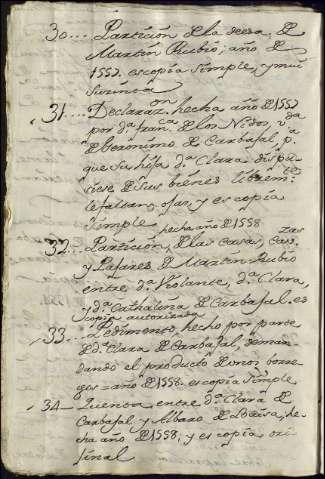 30... Partición de la dessa, de
Martin Rubio; año de
1552. es copia simple, y mui
sucinta
31... Declaraz.on hecha año de 1552
por d.a fran.ca de los Nidos, v.da
de Geronimo de Carbajal p.a
que su hija d.a Clara dispu
siese de sus bienes librem.te
y es copia
simple
32... hecha año de 1558 Partición, de las casas, casas
y Pajares, de Martin Rubio
entre d.a Violante, d.a Clara,
y d.a Cathalina de Carbajal. es
copia autorizada
33... Pedimento, hecho por parte
de d.a Clara de Carbajal, deman
dando el producto de unos borre
gos = año de 1558. es copia simple
34... Quenta entre d.a Clara de
Carbajal y Albaro de he
cha año de 1558, y es copia ori
ginal